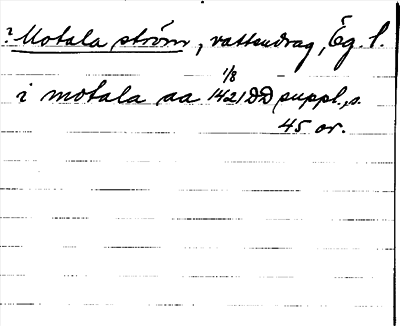 ? Motala ström, vattendrag, Ög. l.
1/8
i motala aa 1421 DD suppl., s.
45 or.